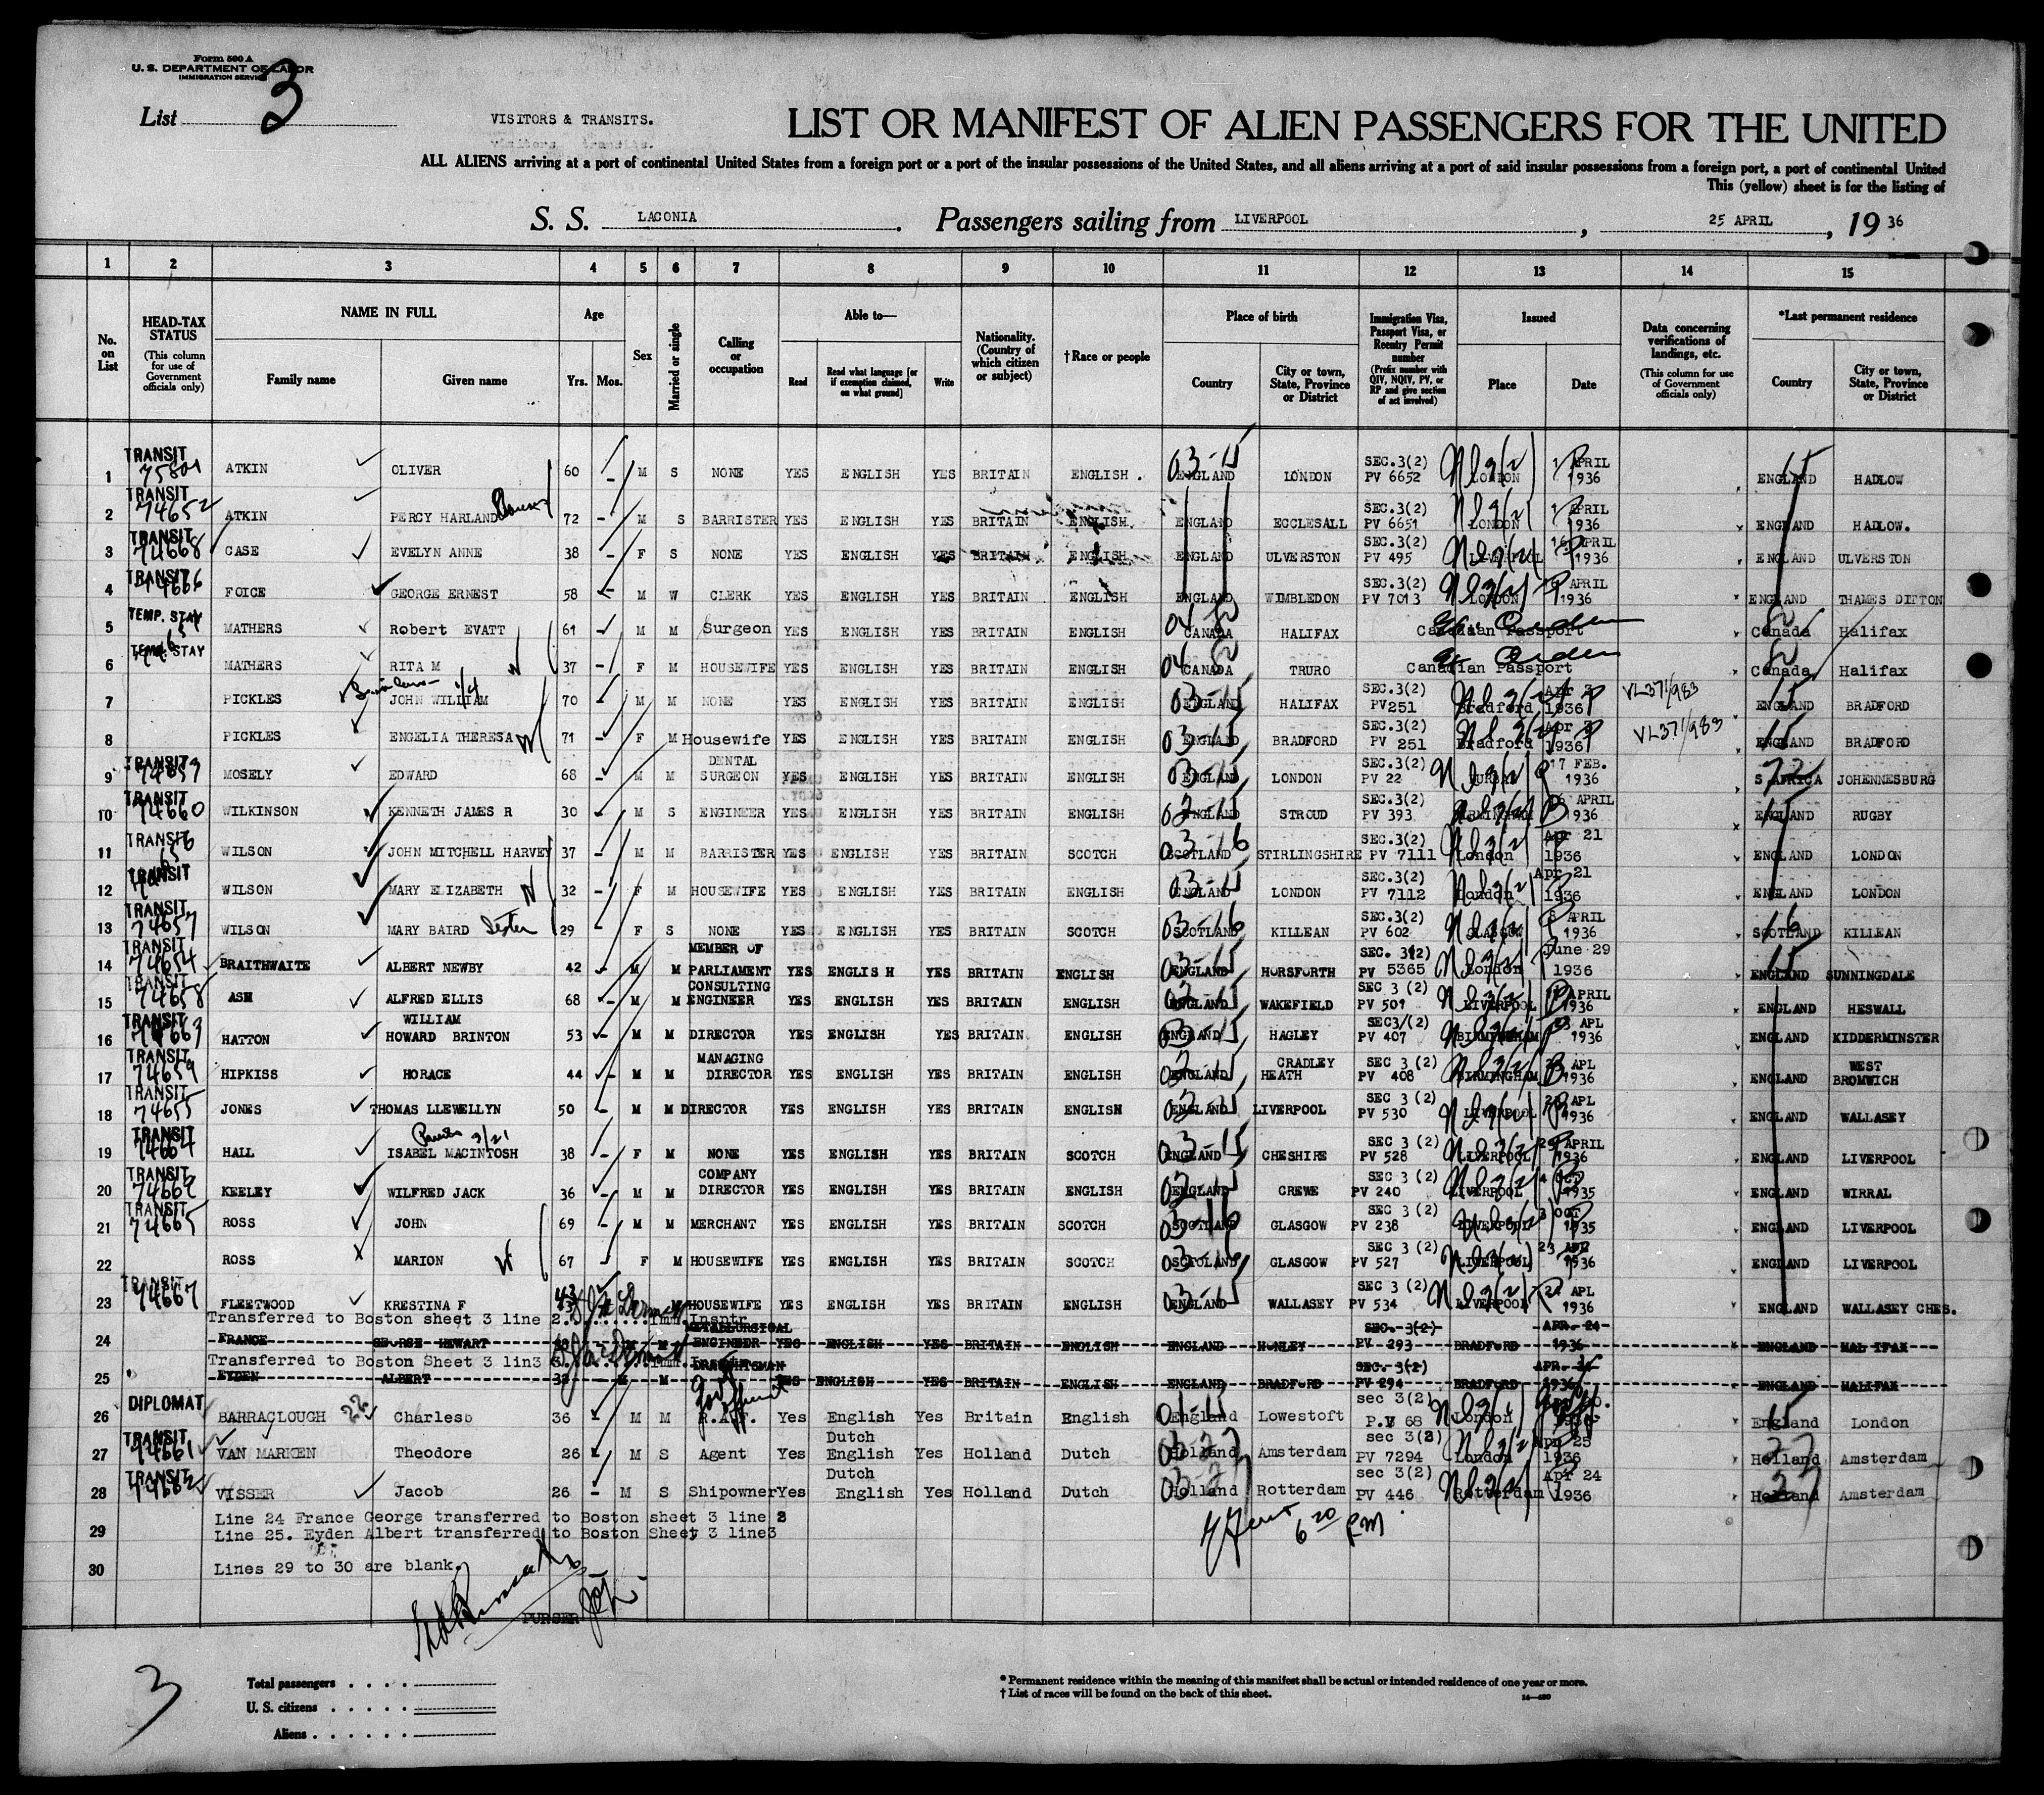 Form 500 A
U. S. DEPARTMENT OF LABOR
IMMIGRATION SERVICE
List 3
VISITORS & TRANSITS.
LIST OR MANIFEST OF ALIEN PASSENGERS FOR THE UNITED
ALL ALIENS arriving at a port of continental United States from a foreign port or a port of the insular possessions of the United States, and all aliens arriving at a port of said insular possessions from a foreign port, a port of continental United
This (yellow) sheet is for the listing of
S. S. LACONIA. Passengers sailing from LIVERPOOL, 25 APRIL, 19 36
1 2 3 4 5 6 7 8 9 10 11 12 13 14 15
No. on List
HEAD-TAX STATUS (This column for use of Government officials only)
NAME IN FULL Family name Given name
Age Yrs. Mos.
Sex
Married or single
Calling or occupation
Able to— Read Read what language [or if exemption claimed, on what ground] Write
Nationality. (Country of which citizen or subject)
†Race or people
Place of birth Country City or town, State, Province or District
Immigration Visa, Passport Visa, or Reentry Permit number (Prefix number with QIV, NQIV, PV, or RP and give section of act involved)
Issued Place Date
Data concerning verifications of landings, etc. (This column for use of Government officials only)
*Last permanent residence Country City or town, State, Province or District
1 TRANSIT ATKIN OLIVER 60 - M S NONE YES ENGLISH YES BRITAIN ENGLISH . 03-15 ENGLAND LONDON SEC.3(2) PV 6652 LONDON APRIL 1936 15 ENGLAND HADLOW
2 TRANSIT 74652 ATKIN PERCY HARLAND 72 - M S BARRISTER YES ENGLISH YES BRITAIN ENGLISH. ENGLAND ECCLESALL SEC.3(2) PV 6651 LONDON APRIL 1936 ENGLAND HADLOW.
3 TRANSIT 74668 CASE EVELYN ANNE 38 - F S NONE YES ENGLISH YES BRITAIN ENGLISH ENGLAND ULVERSTON SEC.3(2) PV 495 LIVERPOOL 16 APRIL 1936 ENGLAND ULVERSTON
4 TRANSIT 74666 FOICE GEORGE ERNEST 58 - M W CLERK YES ENGLISH YES BRITAIN ENGLISH ENGLAND WIMBLEDON SEC.3(2) PV 7013 LONDON APRIL 1936 ENGLAND THAMES DITTON
5 TEMP. STAY MATHERS Robert EVATT 61 - M M Surgeon YES ENGLISH YES BRITAIN ENGLISH 04 CANADA HALIFAX Canadian Passport Canada Halifax
6 TEMP. STAY MATHERS RITA M 37 - F M HOUSEWIFE YES ENGLISH YES BRITAIN ENGLISH 04 CANADA TRURO Canadian Passport Canada Halifax
7 PICKLES JOHN WILLIAM 70 - M M NONE YES ENGLISH YES BRITAIN ENGLISH 03-15 ENGLAND HALIFAX SEC.3(2) PV251 Bradford Apr 3 1936 VL371/983 15 ENGLAND BRADFORD
8 PICKLES ENGELIA THERESA 71 - F M Housewife YES ENGLISH YES BRITAIN ENGLISH 03-15 ENGLAND BRADFORD SEC.3(2) PV 251 Bradford Apr 3 1936 VL371/983 15 ENGLAND BRADFORD
9 TRANSIT MOSELY EDWARD 68 - M M DENTAL SURGEON YES ENGLISH YES BRITAIN ENGLISH 03-15 ENGLAND LONDON SEC.3(2) PV 22 DURBAN 17 FEB. 1936 S AFRICA JOHENNESBURG
10 TRANSIT 74660 WILKINSON KENNETH JAMES R 30 - M S ENGINEER YES ENGLISH YES BRITAIN ENGLISH ENGLAND STROUD SEC.3(2) PV 393 BIRMINGHAM APRIL 1936 15 ENGLAND RUGBY
11 TRANSIT WILSON JOHN MITCHELL HARVEY 37 - M M BARRISTER YES ENGLISH YES BRITAIN SCOTCH 03-16 SCOTLAND STIRLINGSHIRE SEC.3(2) PV 7111 London Apr 21 1936 ENGLAND LONDON
12 TRANSIT WILSON MARY ELIZABETH 32 - F M HOUSEWIFE YES ENGLISH YES BRITAIN ENGLISH 03-15 ENGLAND LONDON SEC.3(2) PV 7112 London Apr 21 1936 ENGLAND LONDON
13 TRANSIT 74657 WILSON MARY BAIRD Sister 29 - F S NONE YES ENGLISH YES BRITAIN SCOTCH 03-16 SCOTLAND KILLEAN SEC.3(2) PV 602 GLASGOW APRIL 1936 16 SCOTLAND KILLEAN
14 TRANSIT 74654 BRAITHWAITE ALBERT NEWBY 42 - M M MEMBER OF PARLIAMENT YES ENGLIS H YES BRITAIN ENGLISH 03-15 ENGLAND HORSFORTH SEC. 3(2) PV 5365 London June 29 1936 15 ENGLAND SUNNINGDALE
15 TRANSIT 74658 ASH ALFRED ELLIS 68 - M M CONSULTING ENGINEER YES ENGLISH YES BRITAIN ENGLISH 03-15 ENGLAND WAKEFIELD SEC 3 (2) PV 501 LIVERPOOL APRIL 1936 ENGLAND HESWALL
16 TRANSIT 74663 HATTON WILLIAM HOWARD BRINTON 53 - M M DIRECTOR YES ENGLISH YES BRITAIN ENGLISH 03-15 ENGLAND HAGLEY SEC3/(2) PV 407 BIRMINGHAM APL 1936 ENGLAND KIDDERMINSTER
17 TRANSIT 74659 HIPKISS HORACE 44 - M M MANAGING DIRECTOR YES ENGLISH YES BRITAIN ENGLISH 03-15 ENGLAND CRADLEY HEATH SEC 3 (2) PV 408 BIRMINGHAM APL 1936 ENGLAND WEST BROMWICH
18 TRANSIT 74655 JONES THOMAS LLEWELLYN 50 - M M DIRECTOR YES ENGLISH YES BRITAIN ENGLISH 03-15 ENGLAND LIVERPOOL SEC 3 (2) PV 530 LIVERPOOL APL 1936 ENGLAND WALLASEY
19 TRANSIT 74664 HALL ISABEL MACINTOSH 38 - F M NONE YES ENGLISH YES BRITAIN SCOTCH 03-15 ENGLAND CHESHIRE SEC 3 (2) PV 528 LIVERPOOL APRIL 1936 ENGLAND LIVERPOOL
20 TRANSIT KEELEY WILFRED JACK 36 - M M COMPANY DIRECTOR YES ENGLISH YES BRITAIN ENGLISH 03-15 ENGLAND CREWE SEC 3 (2) PV 240 LIVERPOOL OCT 1935 ENGLAND WIRRAL
21 TRANSIT 74665 ROSS JOHN 69 - M M MERCHANT YES ENGLISH YES BRITAIN SCOTCH 03-16 SCOTLAND GLASGOW SEC 3 (2) PV 238 LIVERPOOL OCT 1935 ENGLAND LIVERPOOL
22 ROSS MARION 67 F M HOUSEWIFE YES ENGLISH YES BRITAIN SCOTCH 03-16 SCTOLAND GLASGOW SEC 3 (2) PV 527 LIVERPOOL 23 APR 1936 ENGLAND LIVERPOOL
23 TRANSIT 74667 FLEETWOOD KRESTINA F 43 HOUSEWIFE YES ENGLISH YES BRITAIN ENGLISH 03-15 ENGLAND WALLASEY SEC 3 (2) PV 534 LIVERPOOL APL 1936 ENGLAND WALLASEY CHES.
Transferred to Boston sheet 3 line 2........Imm. Insptr.
24 FRANCE GEORGE HEWART M METALLURGICAL ENGINEER YES ENGLISH YES BRITAIN ENGLISH ENGLAND HONLEY SEC. 3(2) PV 293 BRADFORD APR. 24 1936 ENGLAND HALIFAX
Transferred to Boston Sheet 3 lin3
25 EYDEN ALBERT 32 M M DRAUGHTSMAN YES ENGLISH YES BRITAIN ENGLISH ENGLAND BRADFORD SEC. 3(2) PV 294 BRADFORD APR. 1936 ENGLAND HALIFAX
26 DIPLOMAT BARRACLOUGH Charles 36 - M M R.A.F. Yes English Yes Britain English England Lowestoft sec 3(2) P.V 68 London 1936 15 England London
27 TRANSIT 74661 VAN MARKEN Theodore 26 M S Agent Yes Dutch English Yes Holland Dutch 03-27 Holland Amsterdam sec 3(2) PV 7294 London Apr 25 1936 27 Holland Amsterdam
28 TRANSIT VISSER Jacob 26 - M S Shipowner Yes Dutch English Yes Holland Dutch 03-27 Holland Rotterdam sec 3(2) PV 446 Rotterdam Apr 24 1936 27 Holland Amsterdam
Line 24 France George transferred to Boston sheet 3 line 2
29 Line 25. Eyden Albert transferred to Boston Sheet 3 line3
6 20 P.M.
30 Lines 29 to 30 are blank.
PURSER
3
Total passengers . . . .
U. S. citizens . . . . .
Aliens . . . . . .
* Permanent residence within the meaning of this manifest shall be actual or intended residence of one year or more.
† List of races will be found on the back of this sheet.
14—430